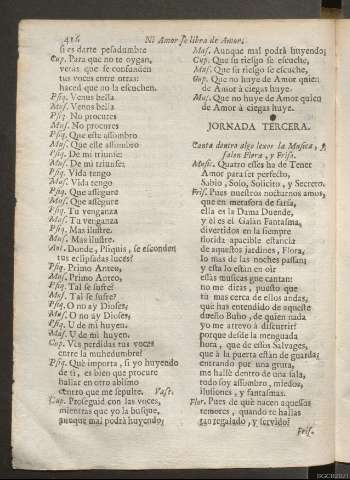 416 Ni Amor se libra de Amor,
si es darte pesadumbre
Cup. Para que no te oygan,
veràs que se confunden
tus voces entre otras:
haced que no la escuchen.
Psiq. Venus bella
Mus. Venus bella
Psiq. No procures
Mus. No procures
Psiq. Que este assombro
Mus. Que este assombro
Psiq. De mi triunfe:
Mus. De mi triunfe:
Psiq. Vida tengo
Mus. Vida tengo
Psiq. Que assegure
Mus. Que assegure
Psiq. Tu venganza
Mus. Tu venganza
Psiq. Mas ilustre.
Mus. Mas ilustre.
Ant. Donde, Psiquis, se esconden
tus eclipsadas luces?
Psiq. Primo Anteo,
Mus. Primo Anteo,
Psiq. Tal se sufre?
Mus. Tal se sufre?
Psiq. O no ay Dioses,
Mus. O no ay Dioses,
Psiq. U de mi huyen.
Mus. U de mi huyen.
Cup. Ves perdidas tus voces
entre la muchedumbre?
Psiq. Què importa, si yo huyendo
de ti, es bien que procure
hallar en otro abismo
centro que me sepulte. Vase.
Cup. Proseguid con las voces,
mientras que yo la busque,
aunque mal podrà huyendo;
Mus. Aunque mal podrà huyendo;
Cup. Que su riesgo se escuche,
Mus. Que su riesgo se escuche,
Cup. Que no huye de Amor quien
de Amor à ciegas huye.
Mus. Que no huye de Amor quien
de Amor à ciegas huye.
JORNADA TERCERA.
Canta dentro algo lexos la Musica, y
salen Flora, y Friso.
Music. Quatro eses ha de tener
Amor para ser perfecto,
Sabio, Solo, Solicito, y Secreto.
Fris. Pues nuestros nocturnos amos,
que en metafora de farsa,
ella es la Dama Duende,
y èl es el Galàn Fantasma,
divertidos en la siempre
florida apacible estancia
de aquestos jardines, Flora,
lo mas de las noches passan;
y esta lo estàn en oir
essas musicas que cantan:
no me diràs, puesto que
tù mas cerca de ellos andas,
què has entendido de aqueste
dueño Buho, de quien nada
yo me atrevo à discurrir?
porque desde la menguada
hora, que de essos Salvages,
que à la puerta estàn de guarda;
entrando por una gruta,
me hallè dentro de una sala,
todo soy assombro, miedos,
ilusiones, y fantasmas.
Flor. Pues de què nacen aquessos
temores, quando te hallas
tan regalado, y servido?
Fris.